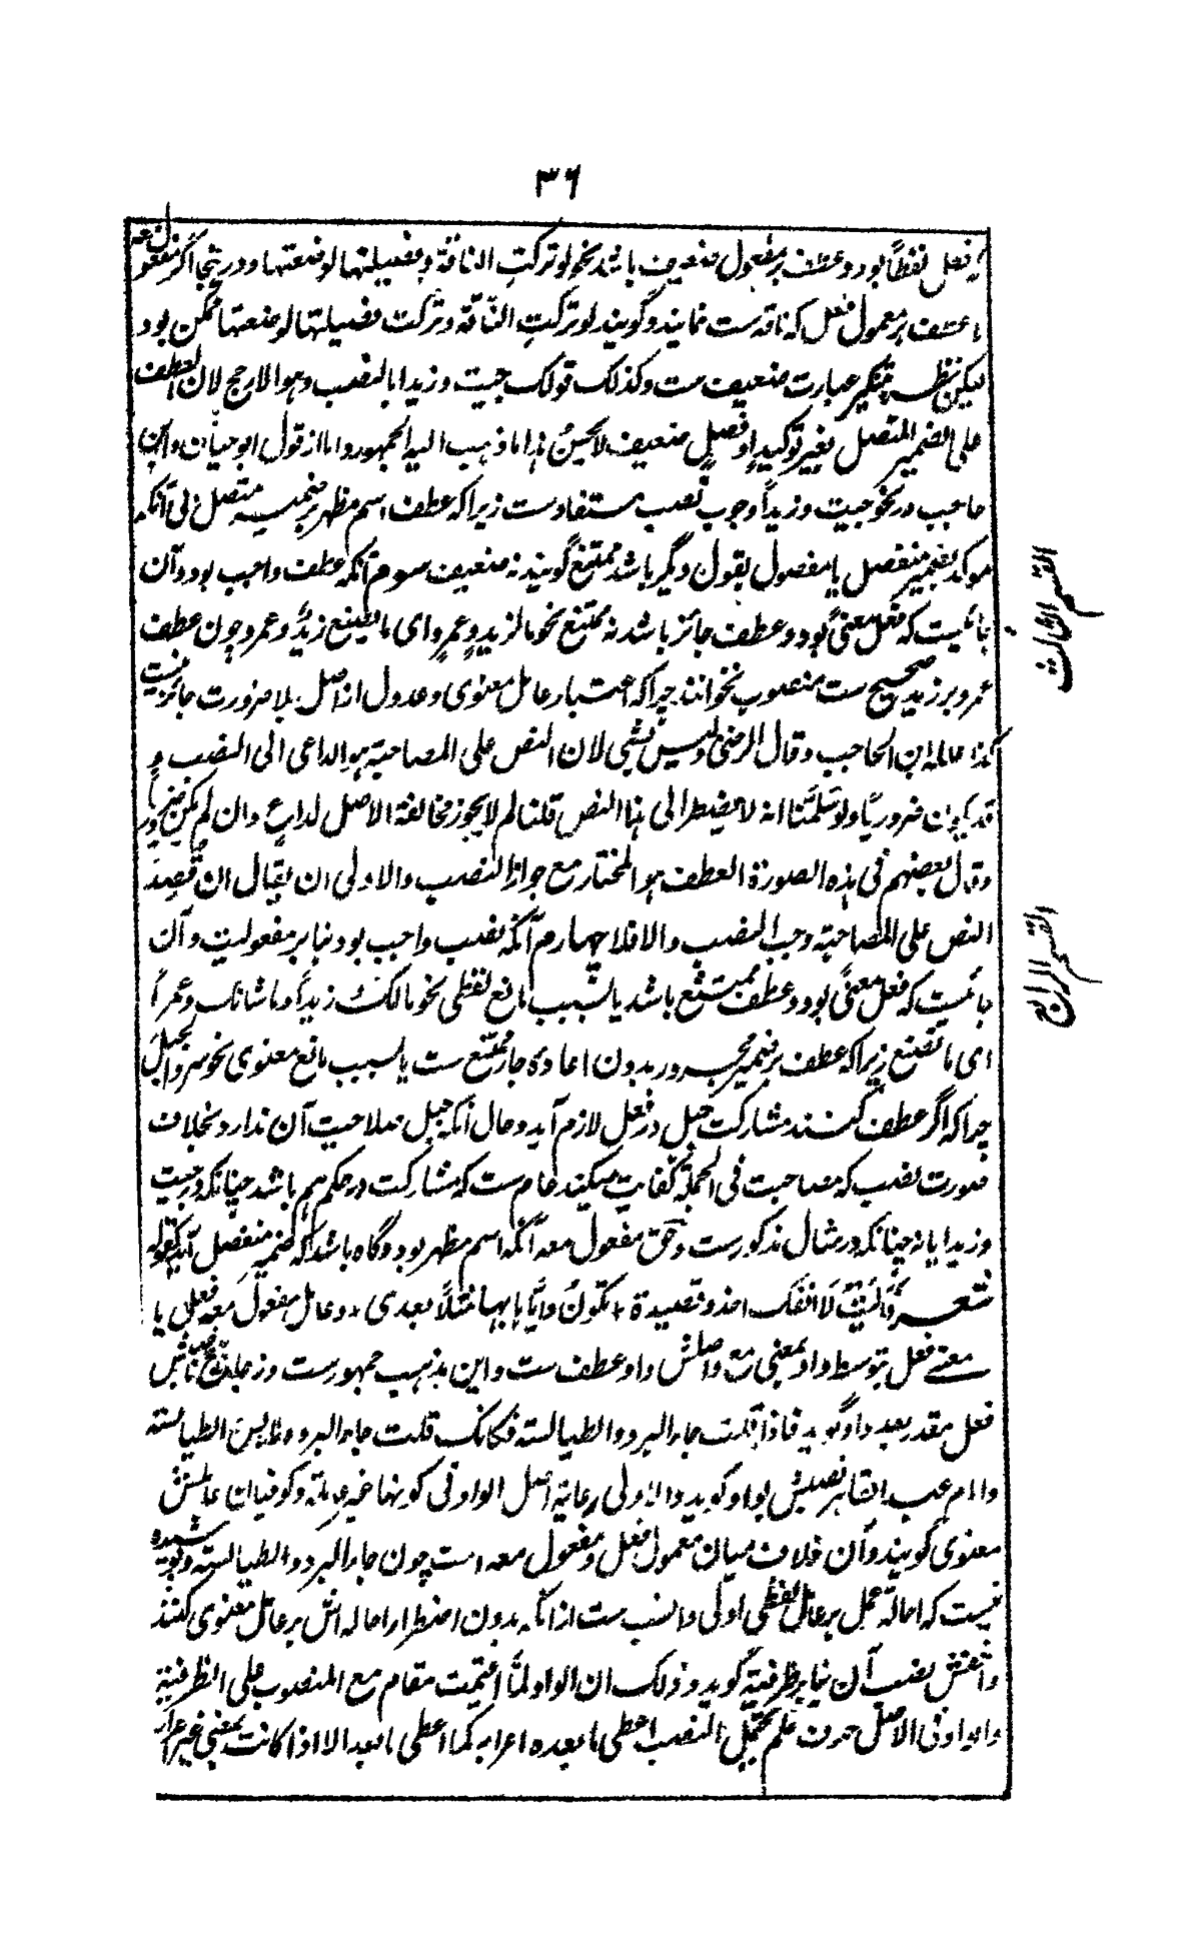 ۳۶
که فعل لفظاً بود و عطف بر مفعول ضعیف باشد نحو لو ترکت الناقة و فصیلتها لرضعتها و درینجا اگر مفعول معه
یا عطف بر معمول فعل که ناقه ست نمایند و گویند لو ترکت الناقة و ترکت فصیلتها لرضعتها ممکن بود
لیکن نظر عبارت ضعیف ست و کذلک قولک جیت و زیدا بالنصب و هو الارجح لان العطف
علی الضمیر المتصل بغیر توکید او فصل ضعیف لا یحسن هذا ما ذهب الیه الجمهور و اما از قول ابو حیان و ابن
حاجب در نحو جیت و زیداً وجوب نصب مستفاد ست زیرا که عطف اسم مظهر بر ضمیر متصل بی آنکه
موکد بضمیر منفصل یا مفصول بقول دیگر باشد ممتنع گویند نه ضعیف سوم آنکه عطف واجب بود و آن
جائیست که فعل معنیً بود و عطف جائز باشد نه ممتنع نحو ما لزید و عمرو ای ما یصنع زید و عمرو چون عطف
عمرو بر زید صحیح ست منصوب نخوانند چرا که اعتبار عامل معنوی و عدول از اصل بلا ضرورت جائز نیست
کذا قاله ابن الحاجب و قال الرضی و لیس بشی لان النص علی المصاحبة هو الداعی الی النصب و
قد یکون ضروریاً ولو سلمنا انه لا یضطر الی هذا النص قلنا لم لا یجوز مخالفة الاصل لداع و ان لم یکن ضروریا
و قال بعضهم فی هذه الصورة العطف هو المختار مع جواز النصب و الاولی ان یقال ان قصد
النص علی المصاحبة وجب النصب و الا فلا چهارم آنکه نصب واجب بود بنا بر مفعولیت و آن
جائیست که فعل معنیً بود و عطف ممتنع باشد یا بسبب مانع لفظی نحو مالک و زیداً و ما شانک و عمراً
ای ما تصنع زیرا که عطف بر ضمیر مجرور بدون اعاده جار ممتنع ست یا بسبب مانع معنوی نحو سر و الجبل
چرا که اگر عطف کنند مشارکت جبل در فعل لازم آید و حال آنکه جبل صلاحیت آن ندارد بخلاف
صورت نصب که مصاحبت فی الجملة کفایت میکند عام ست که مشارکت در حکم هم باشد چنانکه در جیت
و زیدا یا نه چنانکه در مثال مذکور ست و حق مفعول معه آنکه اسم مظهر بود و گاه باشد که ضمیر منفصل آید کقوله
شعر فآلیت لا انفک احذو قصیدة * تکون و ایاها بها مثلاً بعدی * و عامل مفعول معه فعلی یا
معنے فعل بتوسط واو بمعنی مع و اصلش واو عطف ست و این مذهب جمهور ست و زجاج ناصبش
فعل مقدر بعد واو گوید فاذا قلت جاء البرد و الطیالسة فکانک قلت جاء البرد و لابس الطیالسة
و امام عبد القاهر نصبش بواو گوید و الاولی رعایة اصل الواو فی کونها غیر عاملة و کوفیان عاملش
معنوی گویند و آن خلاف میان معمول فعل و مفعول معه است چون جاء البرد و الطیالسة و پوشیده
نیست که احاله عمل بر عامل لفظی اولی و انسب ست از آنکه بدون اضطرار احاله اش بر عامل معنوی کنند
و اخفش نصب آن بنا بر ظرفیة گوید و ذلک ان الواو لما اقیمت مقام مع المنصوب علی الظرفیة
و الواو فی الاصل حرف فلم یحتمل النصب اعطی ما بعده اعرابه کما اعطی ما بعد الا اذا کانت بمعنی غیر اعراب
القسم الثالث
القسم الرابع